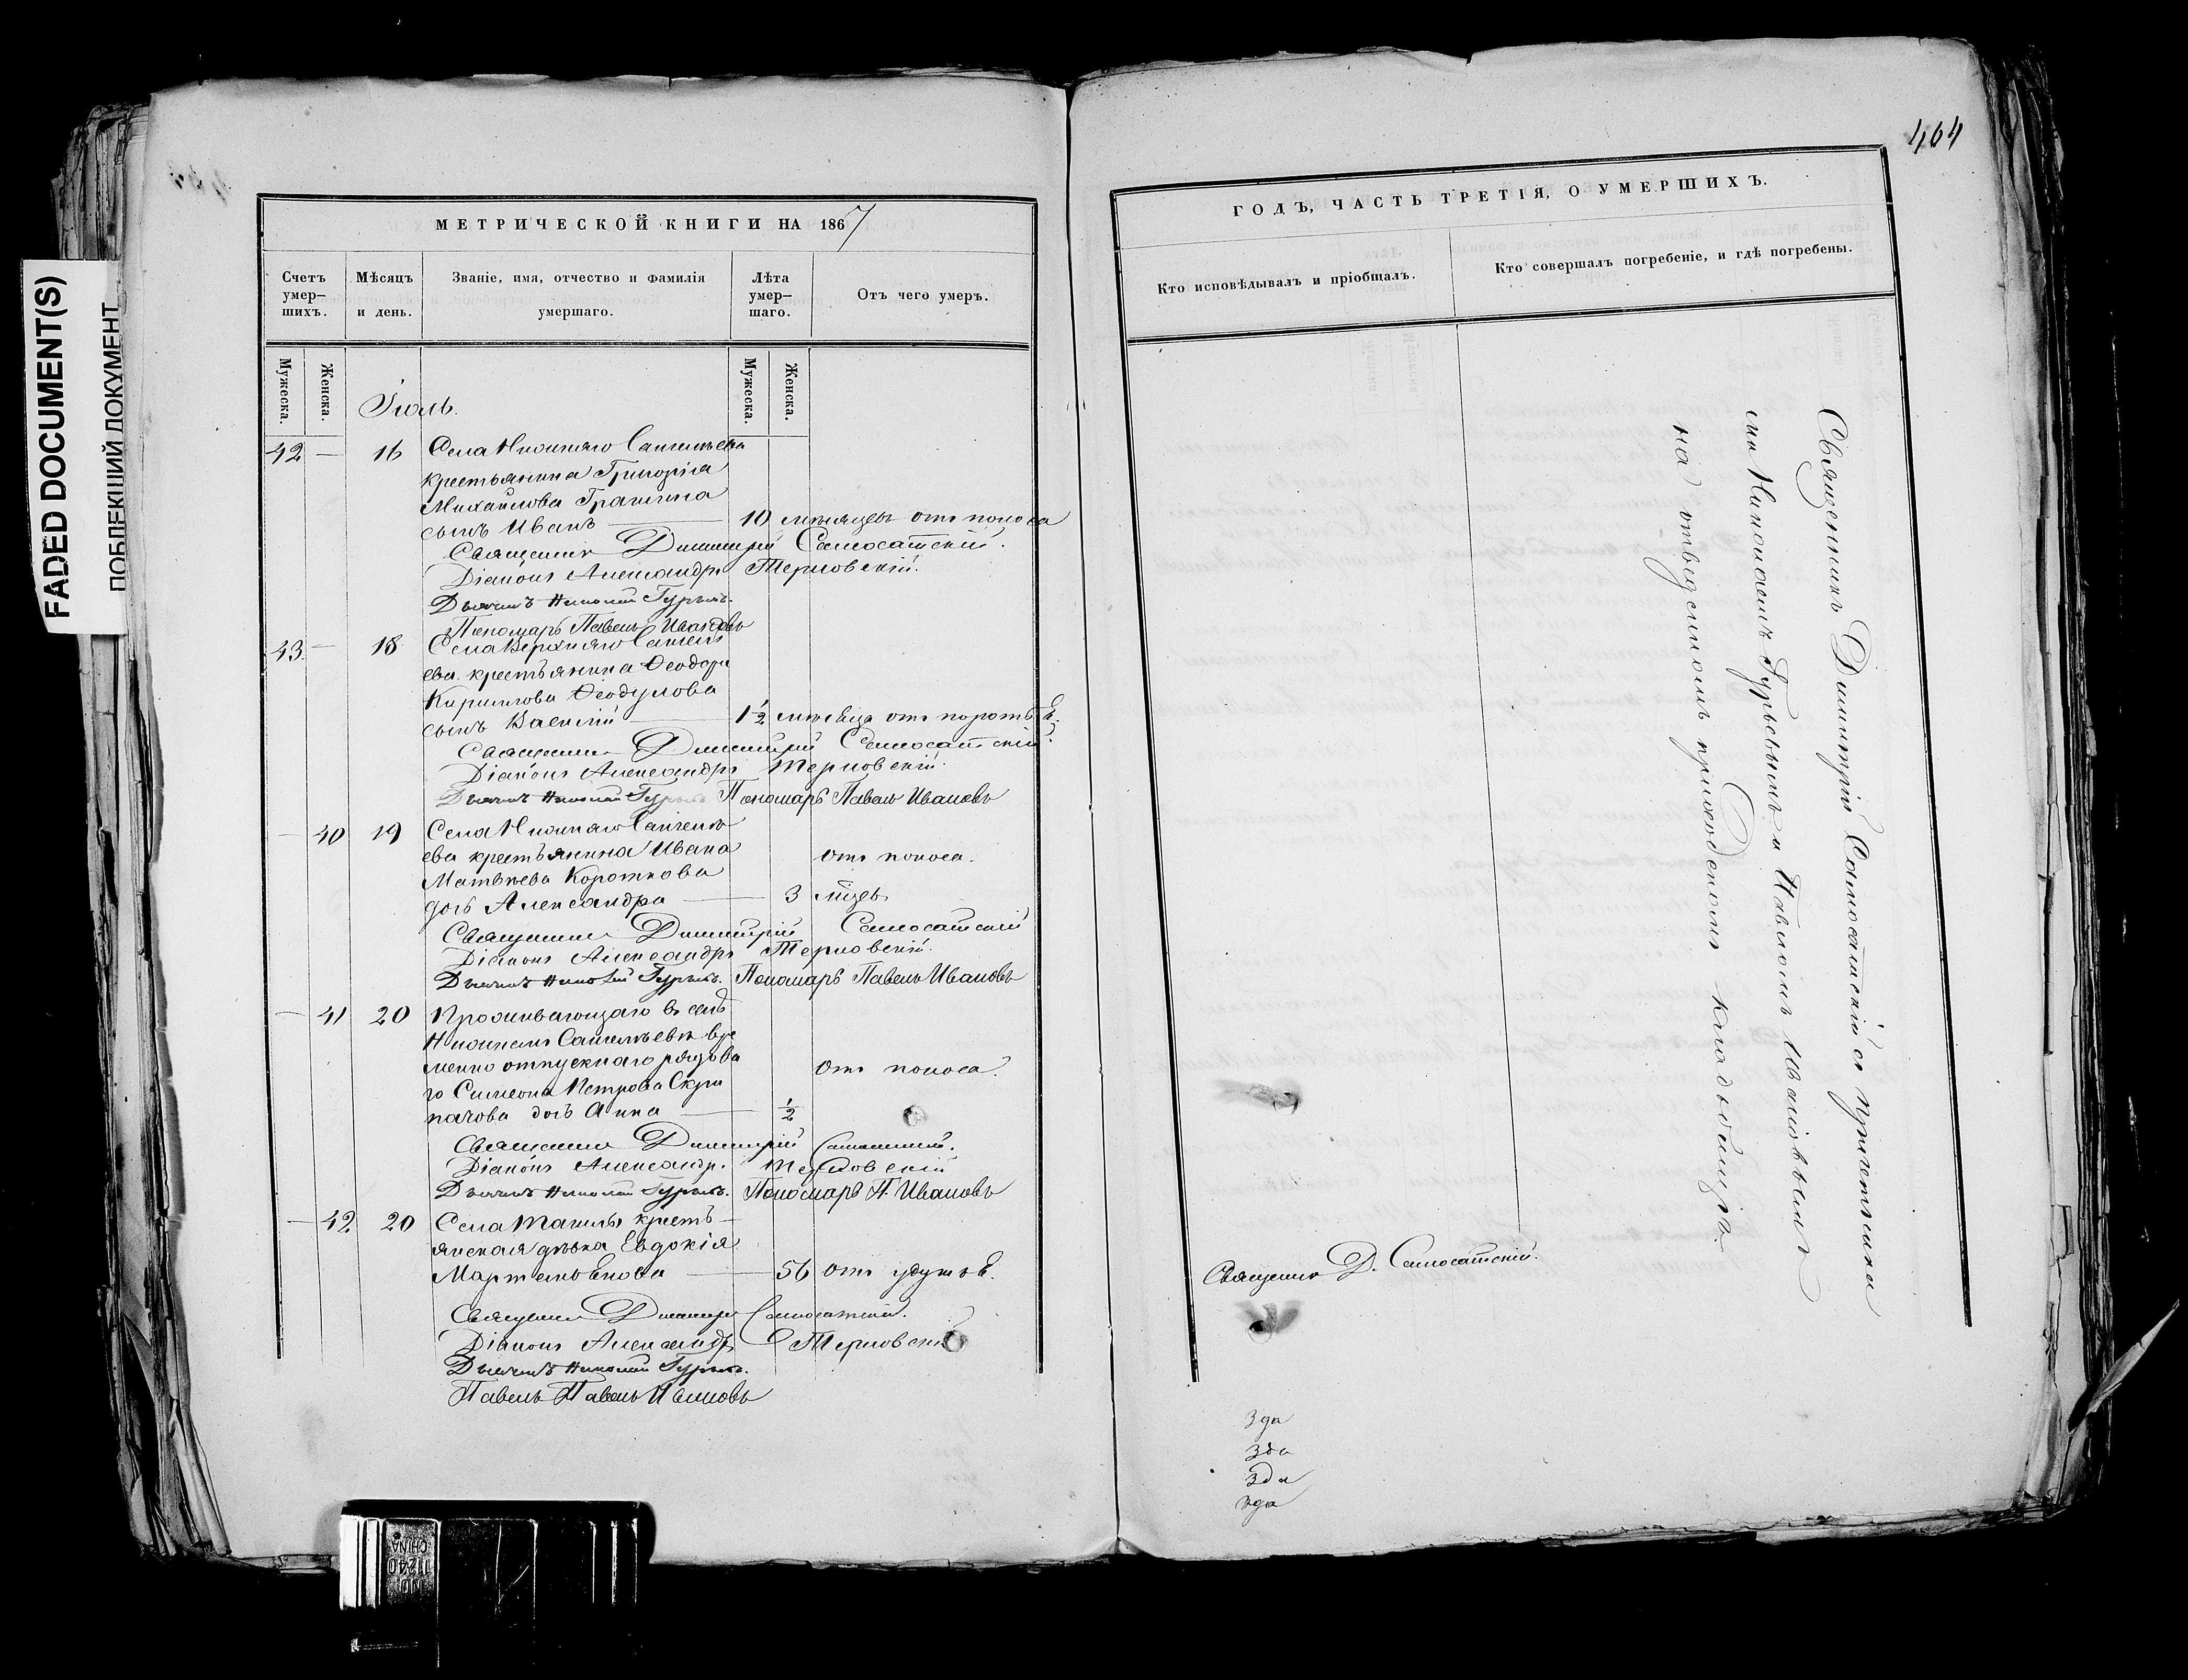 FADED DOCUMENT(S)
ПОБЛЕКШИЙ ДОКУМЕНТ
МЕТРИЧЕСКОЙ КНИГИ НА 1867
Счетъ умер–шихъ.
Мѣсяцъ и день.
Званіе, имя, отчество и фамилія умершаго.
Лѣта умер–шаго.
Отъ чего умеръ.
Мужеска.
Женска.
Мужеска.
Женска.
Іюль.
42 — 16 Села Нижняго
крестьянина Григорія
Михайлова
сынъ Иванъ — 10 мѣсяцевъ отъ поноса
Священникъ Димитрій Самосатскій.
Діаконъ Александръ Терновскій.
Дьячекъ Николай Гурьевъ.
Пономарь Павелъ Ивановъ
43 — 18 Села Верхняго
ева крестьянина Ѳеодора
Кирилова Ѳеодулова
сынъ Василій — 1½ мѣсяца отъ
Священникъ Димитрій Самосатскій.
Діаконъ Александръ Терновскій.
Дьячекъ Николай Гурьевъ Пономарь Павелъ Ивановъ
— 40 19 Села Нижняго
ева крестьянина Ивана отъ поноса.
Матвѣева Короткова
дочь Александра — 3 мцевъ
Священникъ Димитрій Самосатскій
Діаконъ Александръ Терновскій.
Дьячекъ Николай Гурьевъ. Пономарь Павелъ Ивановъ
— 41 20 Проживающаго въ селѣ
Нижнемъ вре
менно отпускнаго рядова отъ поноса.
го Симеона Петрова Скри
пачова дочь Анна — ½
Священникъ Димитрій Самосатскій.
Діаконъ Александръ Терновскій
Дьячекъ Николай Гурьевъ. Пономарь П. Ивановъ
— 42 20 Села кресть–
янская дѣвка Евдокія
— 56 отъ удушья.
Священникъ Димитрій Самосатскій.
Діаконъ Александръ Терновскій
Дьячекъ Николай Гурьевъ.
Павелъ Павелъ Ивановъ
464
ГОДЪ, ЧАСТЬ ТРЕТІЯ, О УМЕРШИХЪ.
Кто исповѣдывалъ и пріобщалъ.
Кто совершалъ погребеніе, и гдѣ погребены.
Священникъ Димитрій Самосатскій съ причетника
ми Николаемъ Гурьевымъ и Павломъ Ивановымъ
на отведенномъ приходскомъ кладбищѣ.
Священникъ Д. Самосатскій.